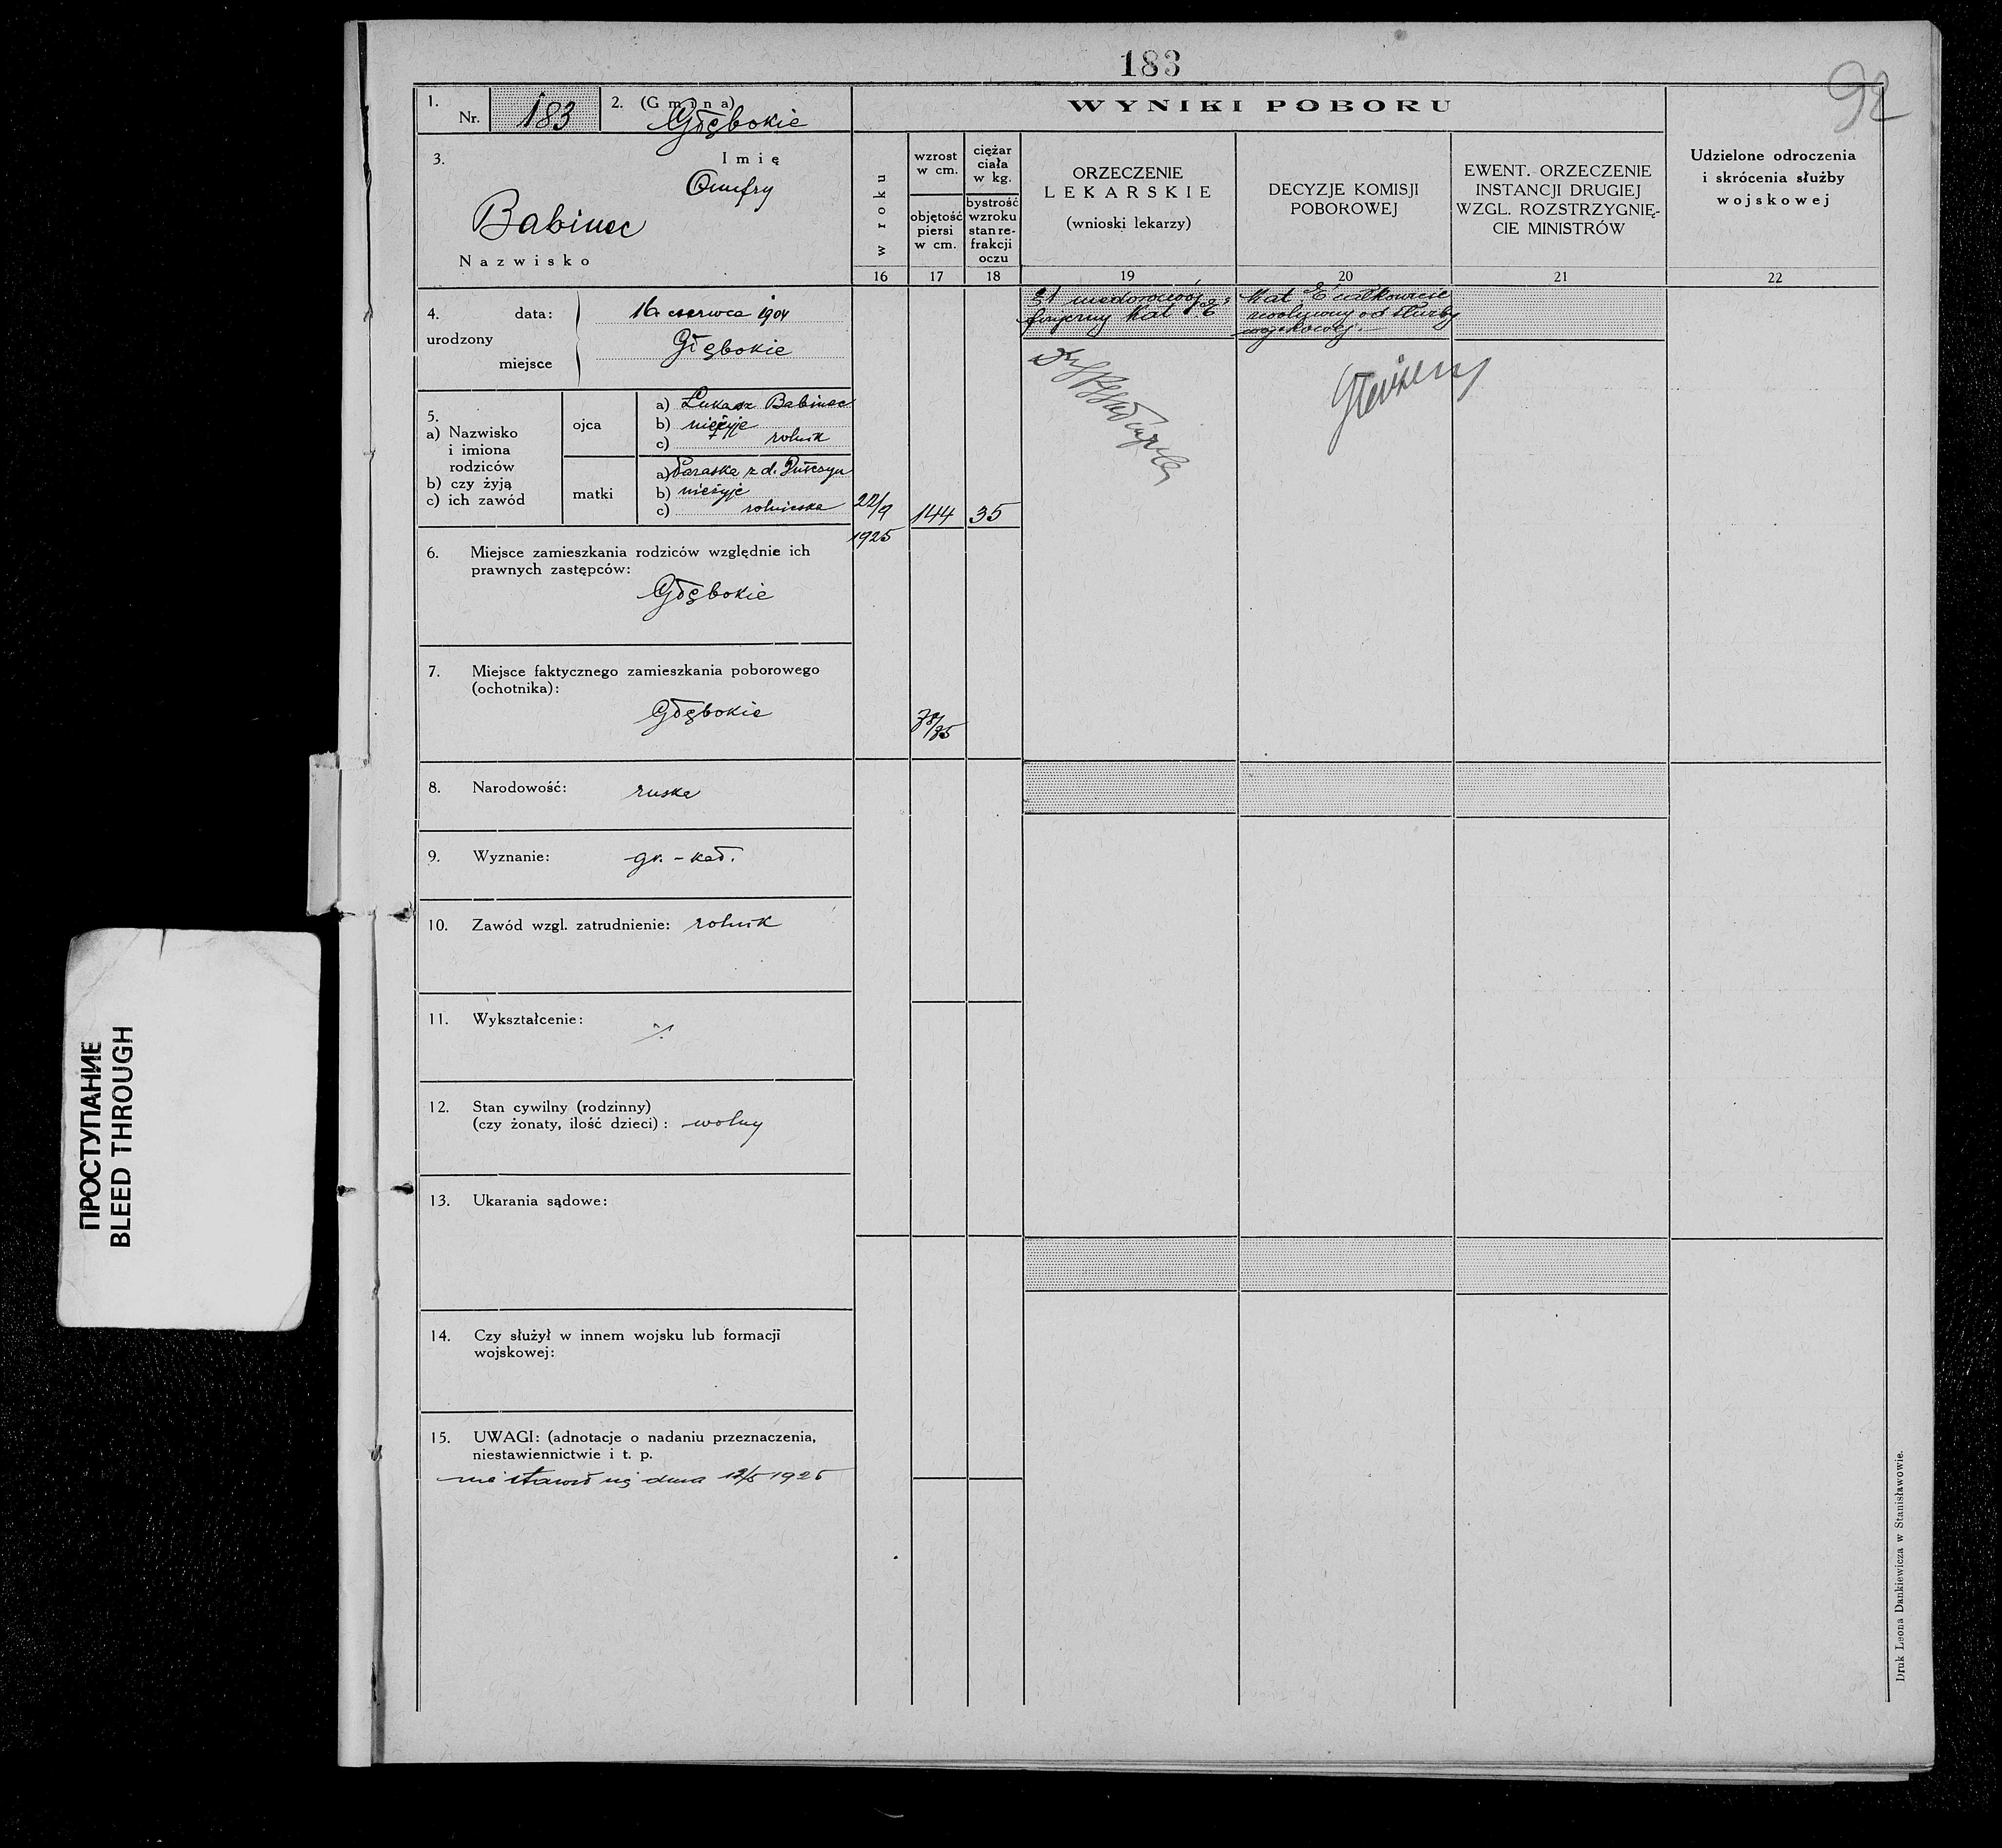 183
92
1.
Nr. 183
2. (Gmina)
Głębokie
3. Imię
Onufry
Babinec
Nazwisko
4. urodzony
data: 16 czerwca 1904
miejsce Głębokie
5.
a) Nazwisko i imiona rodziców
b) czy żyją
c) ich zawód
ojca
a) Łukasz Babinec
b) nieżyje
c) rolnik
matki
a) Paraska z d.
b) nieżyje
c) rolniczka
6. Miejsce zamieszkania rodziców względnie ich
prawnych zastępców:
Głębokie
7. Miejsce faktycznego zamieszkania poborowego
(ochotnika):
Głębokie
8. Narodowość: ruska
9. Wyznanie: gr. - kat.
10. Zawód wzgl. zatrudnienie: rolnik
11. Wykształcenie:
12. Stan cywilny (rodzinny)
(czy żonaty, ilość dzieci): wolny
13. Ukarania sądowe:
14. Czy służył w innem wojsku lub formacji
wojskowej:
15. UWAGI: (adnotacje o nadaniu przeznaczenia,
niestawiennictwie i t. p.
nie stawił się dnia 12/5 1925
WYNIKI POBORU
w roku
wzrost
w cm.
objętość
piersi
w cm.
ciężar
ciała
w kg.
bystrość
wzroku
stan re-
frakcji
oczu
ORZECZENIE
LEKARSKIE
(wnioski lekarzy)
DECYZJE KOMISJI
POBOROWEJ
EWENT. ORZECZENIE
INSTANCJI DRUGIEJ
WZGL. ROZSTRZYGNIĘ-
CIE MINISTRÓW
Udzielone odroczenia
i skrócenia służby
wojskowej
16 17 18 19 20 21 22
22/9
1925
144
35
78/85
§1 niedorozwój
fizyczny Kat E
Kat E całkowicie
zwolniony od służby
wojskowej.
Druk Leona Dankiewicza w Stanisławowie.
ПРОСТУПАНИЕ
BLEED THROUGH